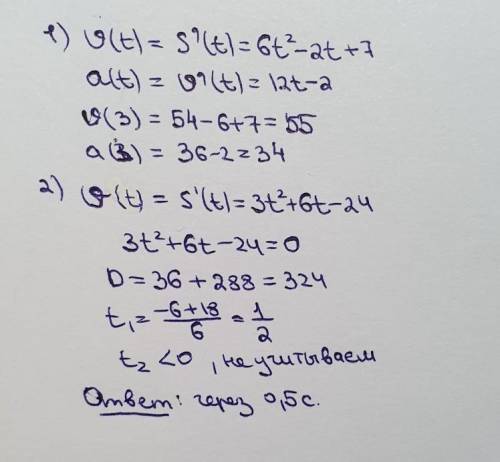 1) υ(t) = S'(t) = 6t² - 2t + 7
a(t) = υ'(t) = 12t - 2
υ(3) = 54 - 6 + 7 = 55
a(3) = 36 - 2 = 34
2) υ(t) = S'(t) = 3t² + 6t - 24
3t² + 6t - 24 = 0
D = 36 + 288 = 324
t₁ = (-6 + 18)/6 = 1/2
t₂ < 0, не учитываем
Ответ: через 0,5 с.